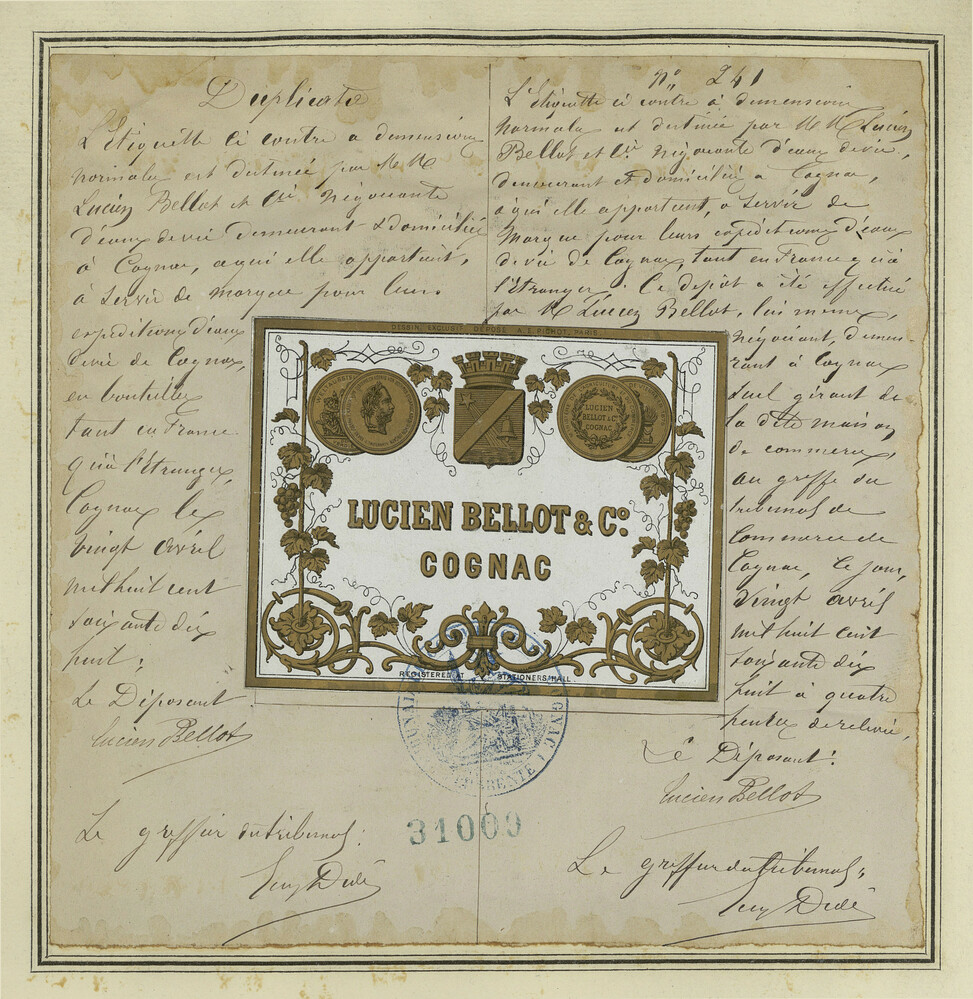 Duplicata
L'étiquette ci contre à dimensions
normales est destinée par MM
Lucien Bellot et Cie Négociants
d'eaux de vie demeurant & domiciliés
à Cognac, à qui elle appartient,
à servir de marque pour leurs
expéditions d'eaux
de vie de Cognac,
en bouteilles
tant en France
qu'à l'étranger,
Cognac le
vingt avril
mil huit cent
soixante dix
huit.
Le Déposant
Lucien Bellot
Le greffier du tribunal:
n° 241
L'étiquette ci contre à dimensions
normales est destinée par MM Lucien
Bellot et Cie, Négociants d'eaux de vie,
demeurant et domiciliés à Cognac,
à qui elle appartient, à servir de
Marque pour leurs expéditions d'eaux
de vie de Cognac, tant en France qu'à
l'étranger. Ce dépôt a été effectué
par M. Lucien Bellot, lui même,
négociant, demeu-
rant à Cognac
seul gérant de
la dite maison
de commerce,
au greffe du
tribunal de
Commerce de
Cognac, le jour,
Vingt avril
mil huit cent
soixante dix
huit à quatre
heures de relevée,
Le Déposant:
Lucien Bellot
Le greffier du tribunal,
DESSIN EXCLUSIF DÉPOSÉ A. E. PICHOT, PARIS.
LUCIEN
BELLOT & Cº
COGNAC
LUCIEN BELLOT & Cº.
COGNAC
REGISTERED AT STATIONERS HALL.
31009